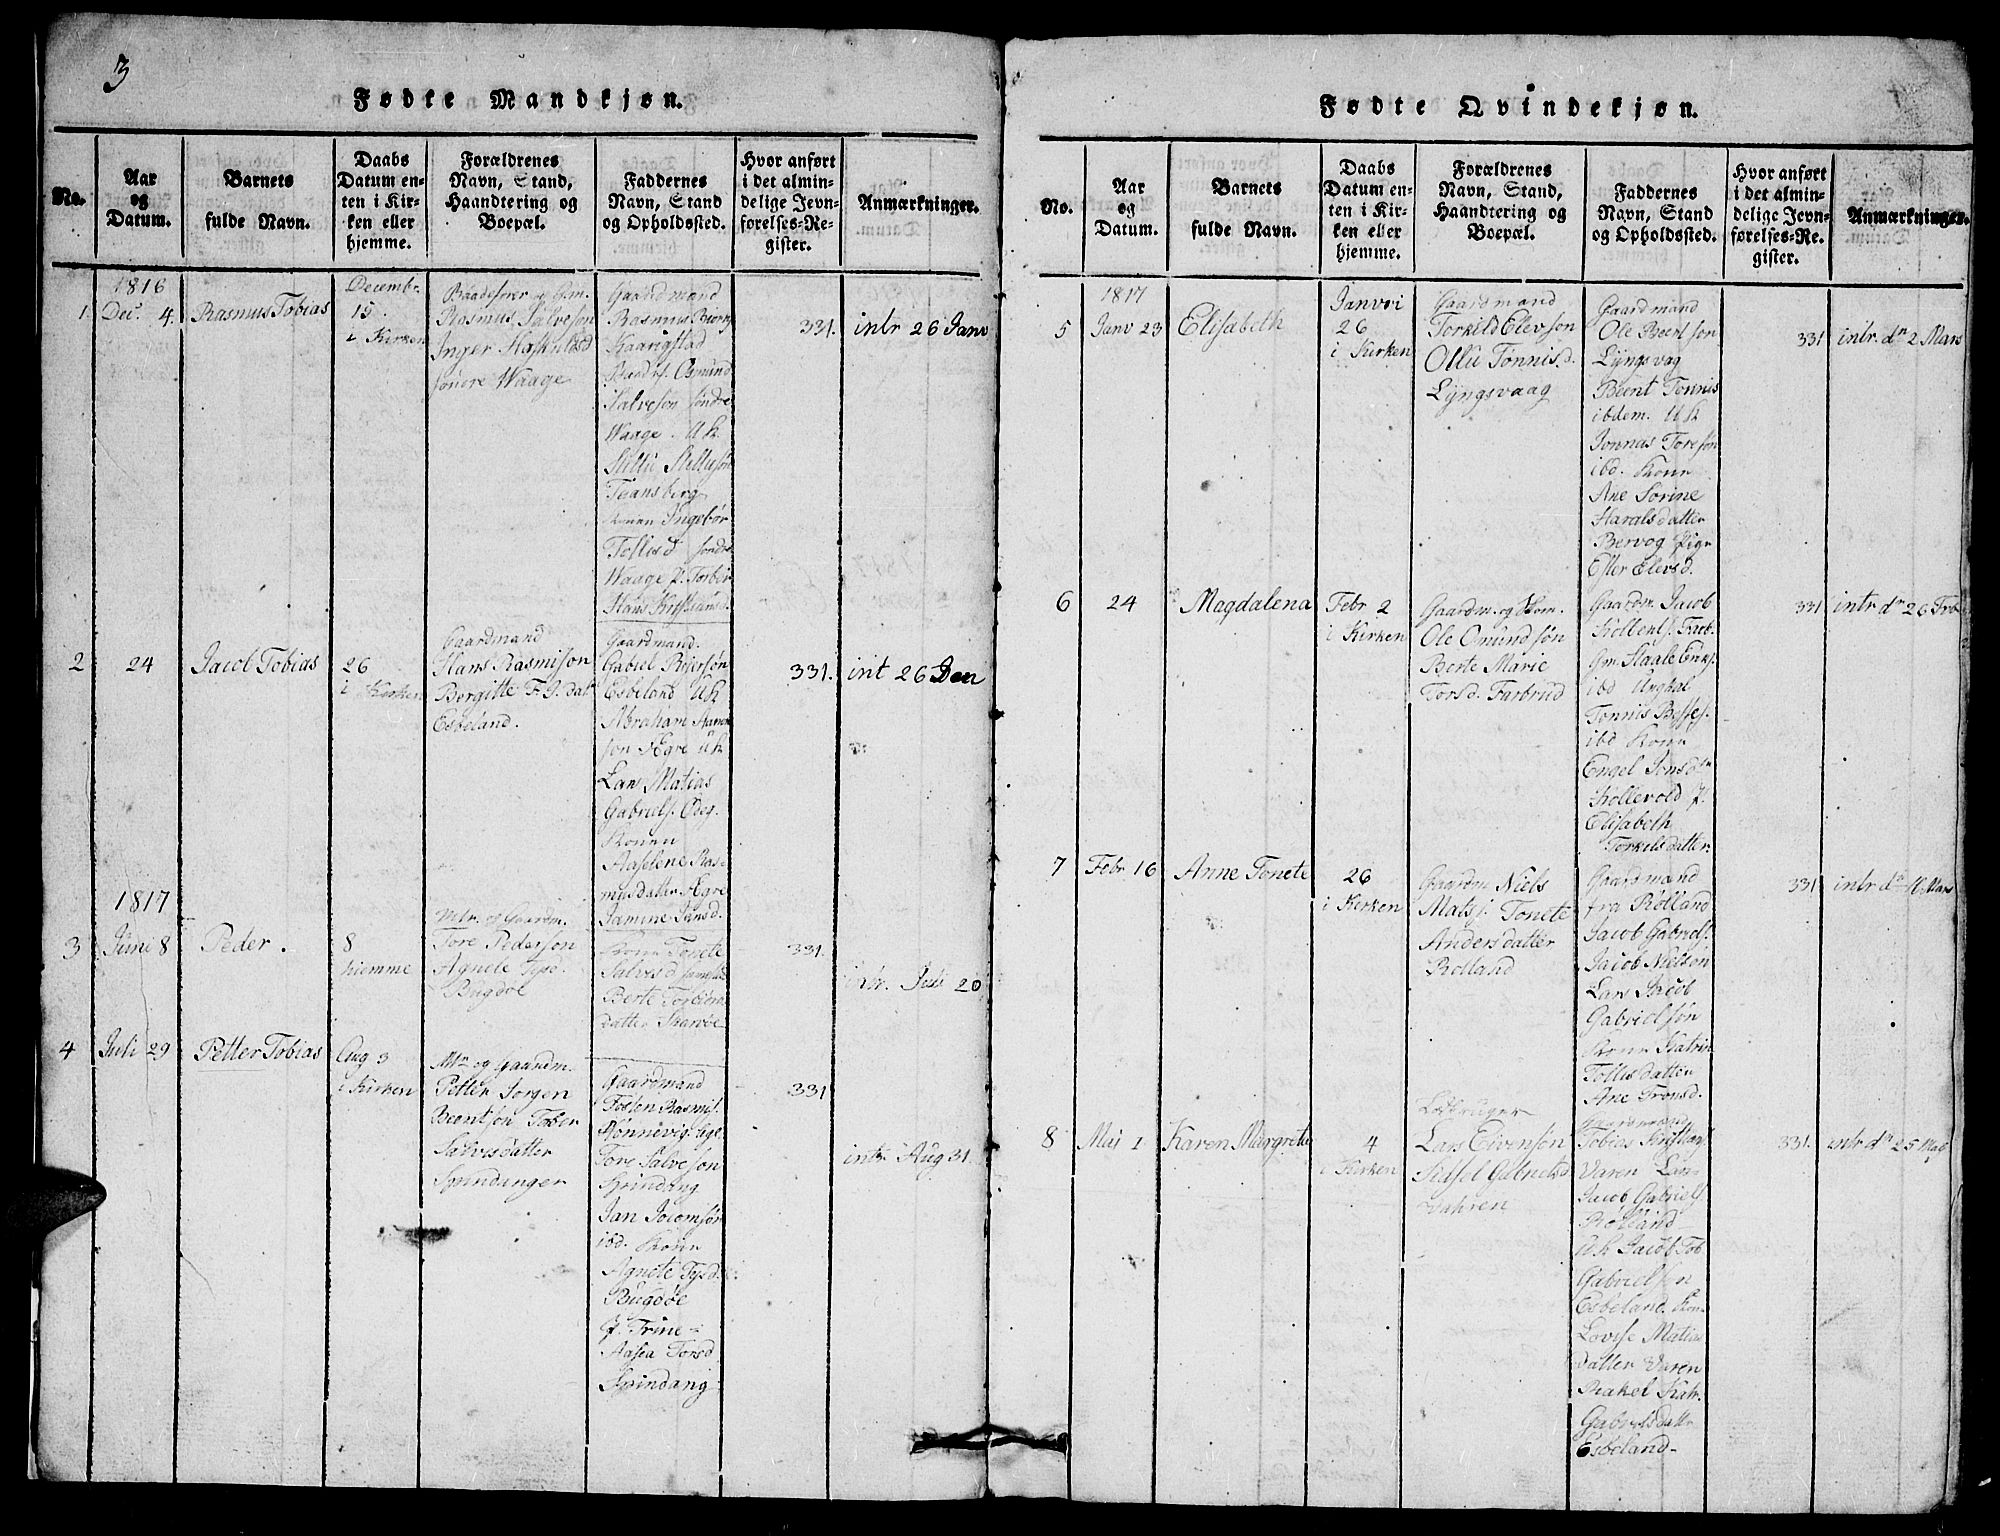 3
Fødte Mandkjøn.
No.
Aar
og
Datum.
Barnets
fulde Navn.
Daabs
Datum en-
ten i Kir-
ken eller
hjemme.
Forældrenes
Navn, Stand,
Haandtering og
Boepæl.
Faddernes
Navn, Stand
og Opholdssted.
Hvor anført
i det almin-
delige Jevn-
førelses-Re-
gister.
Anmærkninger.
1
1816
Dec. 4
Rasmus Tobias
Decembr
15.
i Kirken
Baadsfører og Gm.
Rasmus Salveson
Inger
søndre Waage
Gaardmand
Rasmus
Osmund
Salveson søndre
Waage. Uk
Ingebor
Tollisd søndr
Waage P. Torbor
Hans
331.
intr 26 Janv
2
24
Jacob Tobias
26
i Kirken
Gaardmand
Hans Rasmison
Bergitte F. J. dat
Esbeland.
Gaardmand.
Gabriel
Esbeland Uk
Abraham Aanen
son Ægre Uk
Lars Matias
Gabriels.
Konen
Aaselene Ras-
musdatter Ægre
Jamine Jansd.
331.
int 26
3
1817
Juni 8
Peder.
8
hiemme
Mtr. og Gaardm.
Tore Pederson
Agnete Tysd.
Bugdøe
Konn Tonete
Salvesd
Berte Torbiørn
datter Skarvøe
331.
intr. Juli 20
4
Juli 29
Petter Tobias
Aug 3
i Kirken
Mtr og Gaardm.
Petter Jørgen
Beentson Tabor
Salvesdatter
Spindanger
Gaardmand
Tosten Rasmis.
Tore Salveson
Spindang
Jan
ibd. Konn
Agnete Tysd.
Bugdøe
P. Trine
Aasea Torsd
Spindang
331
intr Aug 31.
Fødte Qvindekjøn.
No.
Aar
og
Datum.
Barnets
fulde Navn.
Daabs
Datum en-
ten i Kir-
ken eller
hjemme.
Forældrenes
Navn, Stand,
Haandtering og
Boepæl.
Faddernes
Navn, Stand
og Opholdssted.
Hvor anført
i det almin-
delige Jevn-
førelses-Re-
gister.
Anmærkninger.
5
1817
Janv 23
Elisabeth
Janvri
26
i Kirken
Gaardmand
Torkild Elevson
Ollu Tønnisd.
Lyngsvaag
Gaardmand
Ole Beentson
Lyngsvag
Beent Tønnis
ibdem. Uk
Jonnas Toreson
ibd. Konn
Ane Sorine
Haralsdatter
Bervog Pign
Ester Elevsd.
331
intr. dn 2 Mars
6
24
Magdalena
Febr 2
i Kirken
Gaardm. og
Ole Omundsøn
Berte Marie
Torsd. Farbrud
Gaardm. Jacob
Gm. Staale Eriks.
ibd Ungkal
Tønnis
ibd Konn
Engel Jonsdtr
Kollevold P.
Elisabeth
Torkelsdatter
331
intr dn 26
7
Febr 16
Anne Tonete
26
i Kirken
Gaardm Niels
Mats. Tonete
Andersdatter
Røiland
Gaardmand
fra Røiland
Jacob Gabriel
Jacob Nielson
Lars Jacob
Gabrielson
Konn Katrin
Tollisdatter
Ane Tronsd.
331
intr dn 16 Mars
8
Maj 1
Karen Margrete
4
i Kirken
Lodbruger
Lars Eivensøn
Sidsel Gabrielsd
Vahren
Gaardmand
Tobias
Varen Lars
Jacob Gabriels.
Røiland
Uk Jacob Tob
Gabrielson
Esbeland. Kon
Lovise Matia
datter Varen
Rakel Katr.
Gabrielsdatter
Esbeland-
331.
intr dn 25 Maj